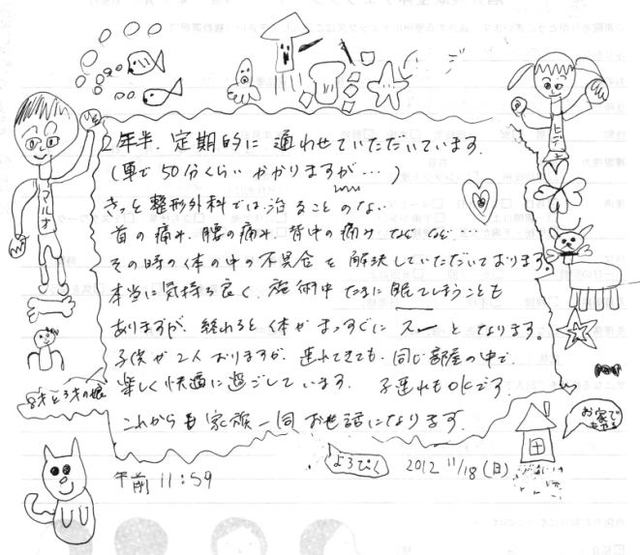 2年半、定期的に通わせていただいています。
(車で50分くらいかかりますが…)
きっと整形外科では治ることのない
首の痛み、腰の痛み、背中の痛みなどなど…
その時の体の中の不具合を解決していただいております。
本当に気持ち良く、施術中たまに眠ってしまうことも
ありますが、終わると体がまっすぐにスーとなります。
子供が2人おりますが、連れてきても、同じ部屋の中で、
楽しく快適に過ごしています。子連れもOKです。
これからも家族一同お世話になります。
マルオ
8才と3才の娘
お家で
よろぴく
2012 11/18(日)
午前11:59